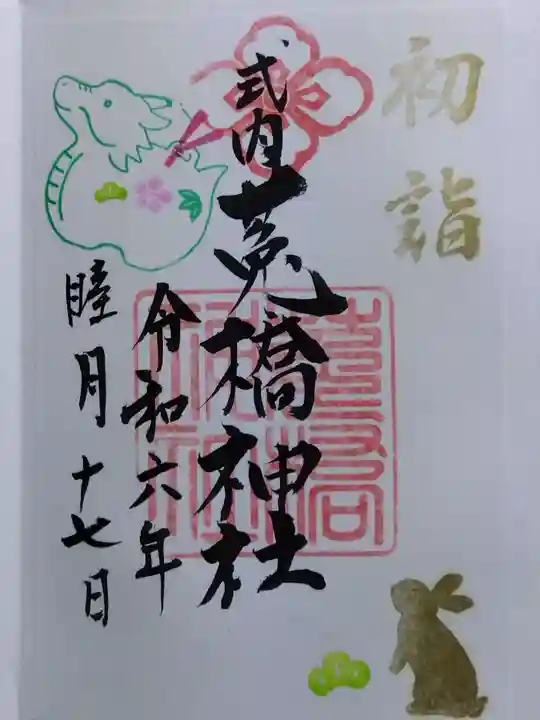 初詣
式内
莵橋神社
令和六年
睦月十七日